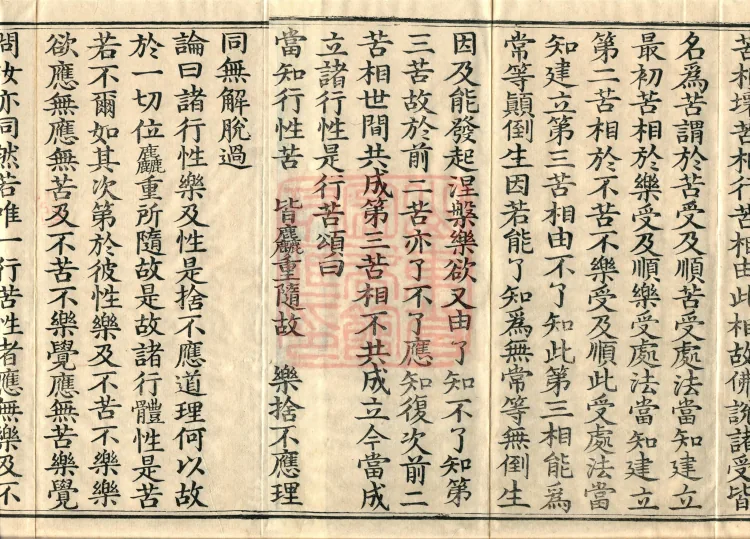 苦相壞苦相行苦相由此相故佛說諸受皆
名爲苦謂於苦受及順苦受處法當知建立
最初苦相於樂受及順樂受處法當知建立
第二苦相於不苦不樂受及順此受處法當
知建立第三苦相由不了知此第三相能爲
常等顛倒生因若能了知爲無常等無倒生
因及能發起涅槃樂欲又由了知不了知第
三苦故於前二苦亦了不了應知復次前二
苦相世間共成第三苦相不共成立今當成
立諸行性是行苦頌曰
當知行性苦　皆麤重隨故　樂捨不應理
同無解脫過
論曰諸行性樂及性是捨不應道理何以故
於一切位麤重所隨故是故諸行體性是苦
若不爾如其次第於彼性樂及不苦不樂樂
欲應無應無苦及不苦不樂覺應無苦樂覺
問汝亦同然若唯一行苦性者應無樂及不